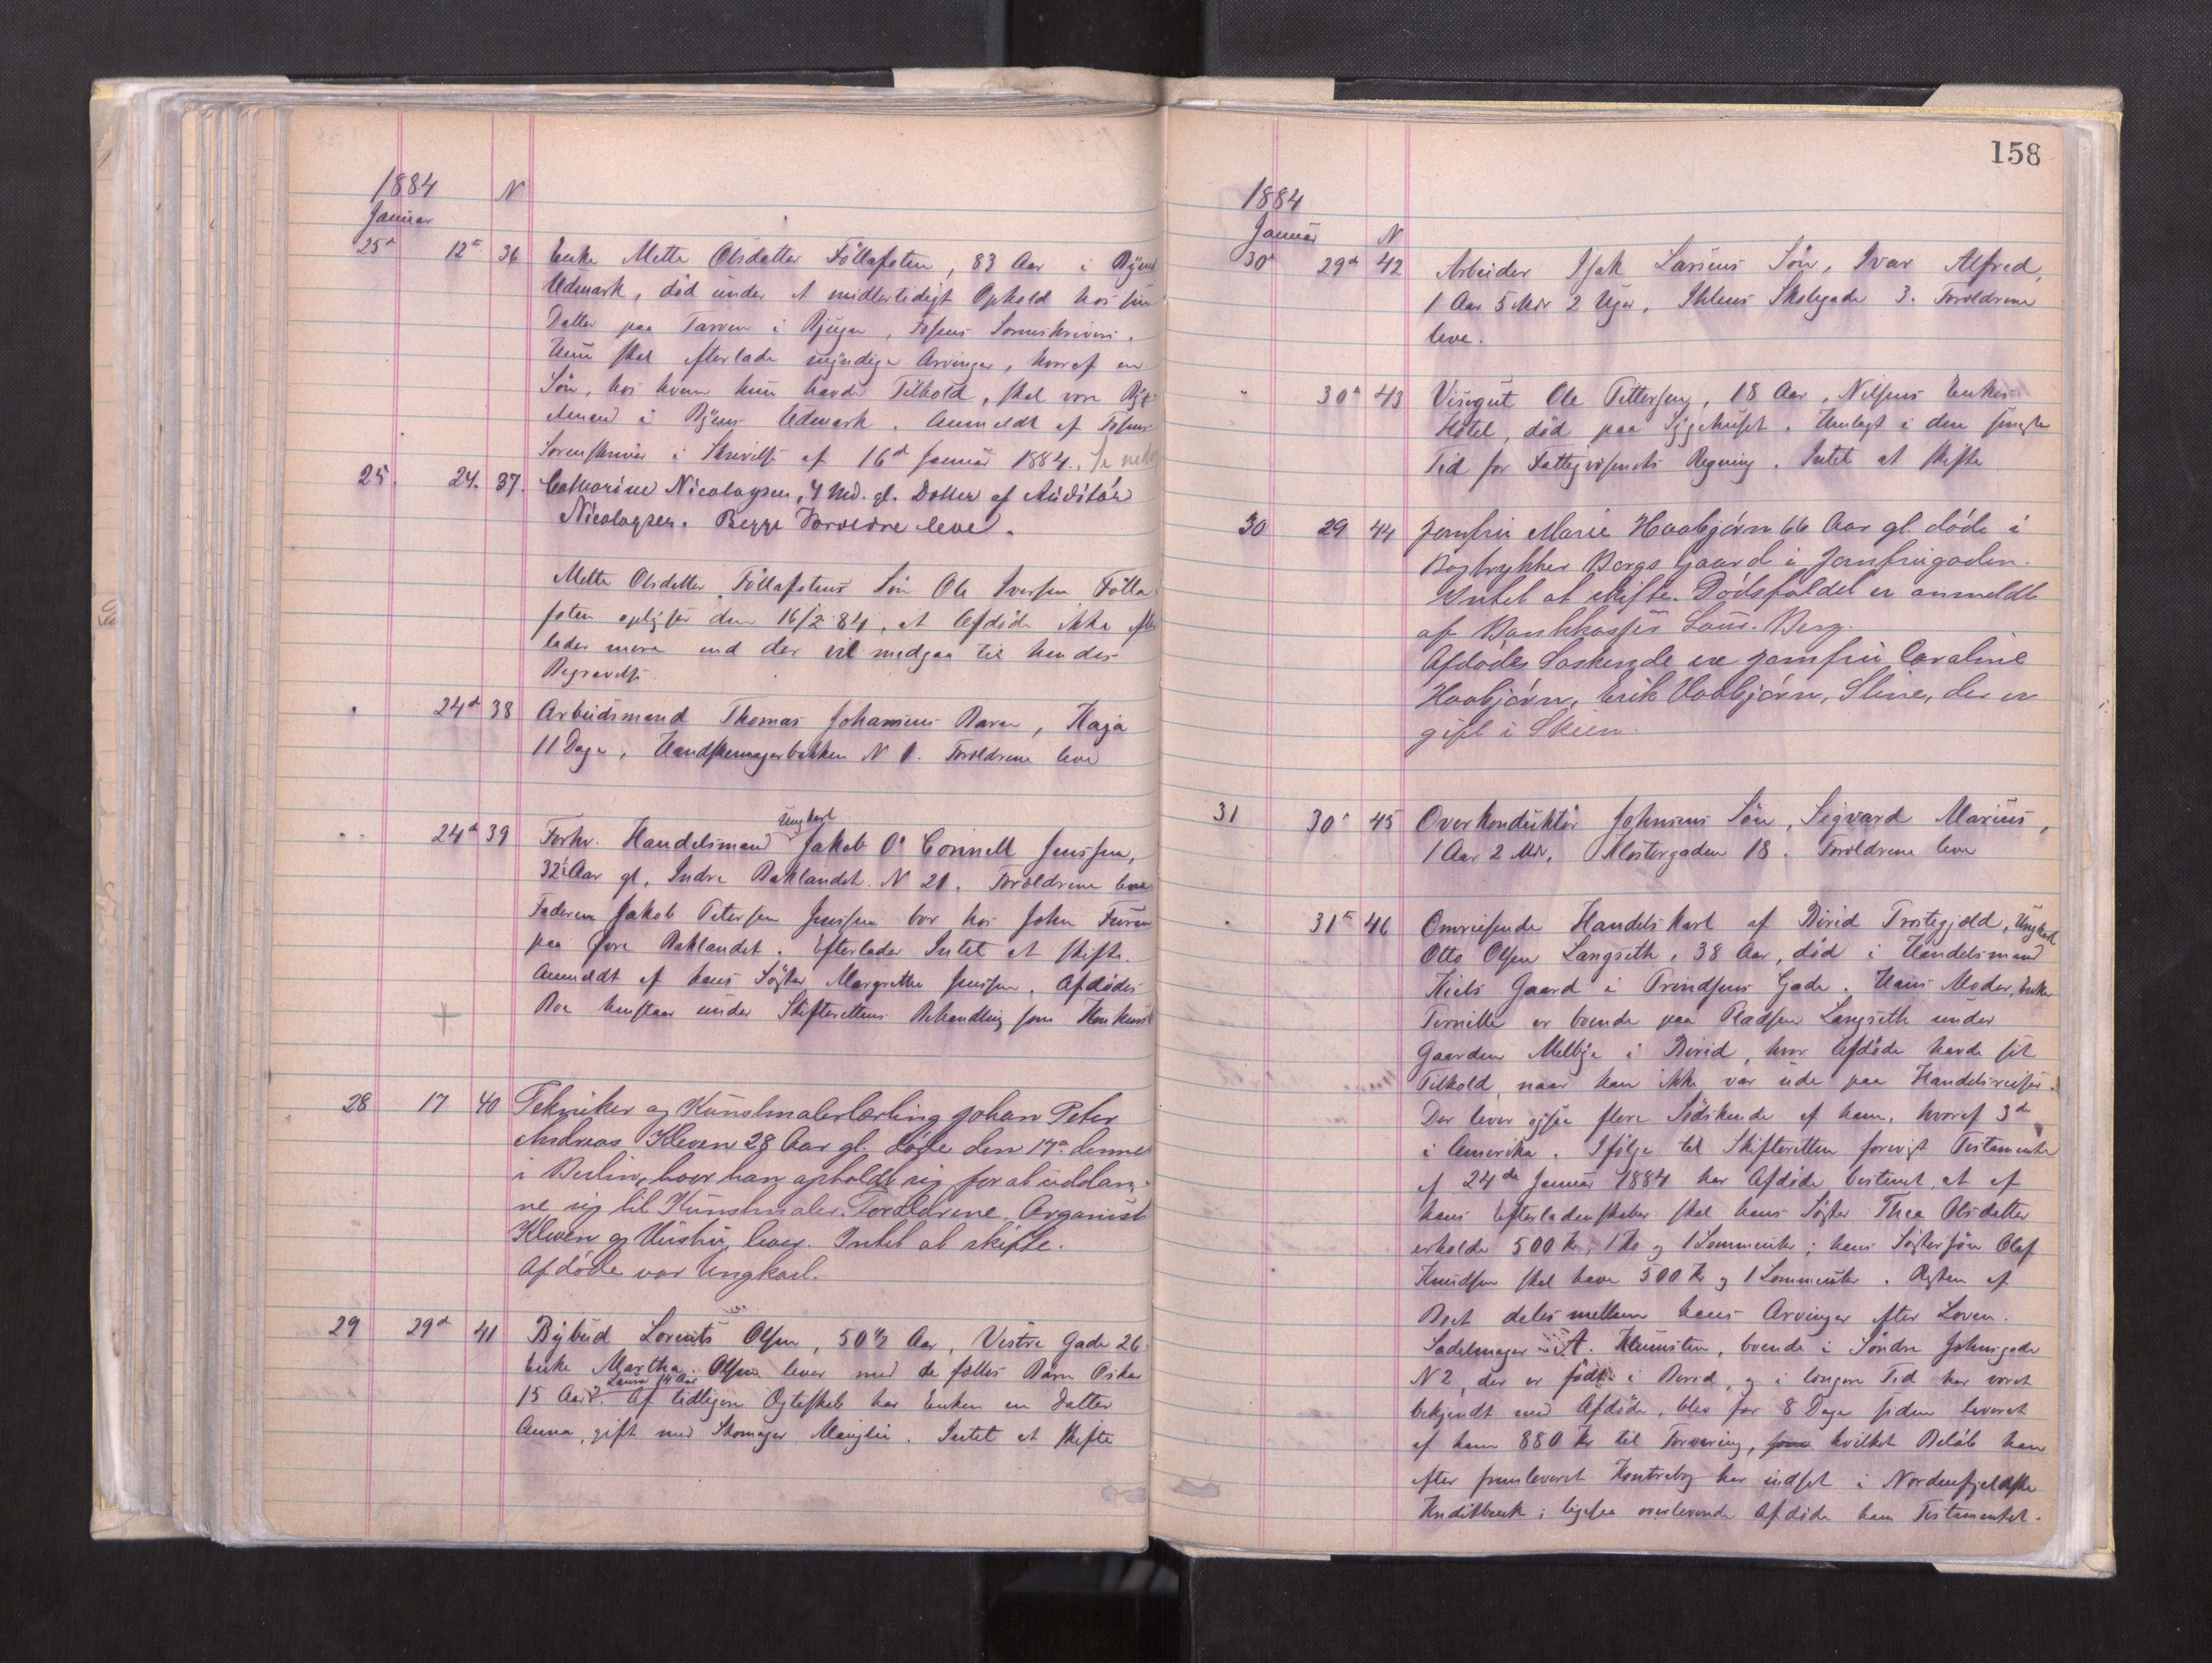 1884 N
Januar
25d 12te 36 Enke Mette Olsdatter Föllafoten, 83 Aar i Byens
Udmark, död under et midlertidigt Ophold hos sin
Datter paa Tarven i Bjugn, Fosens Sorenskriveri.
Hun skal efterlade myndige Arvinger, hvoraf en
Sön, hos hvem hun havde Tilhold, skal være
i Byens Udmark. Anmeldt af Fosens
Sorenskriver i Skrivelse af 16d Januar 1884. Se ned
25. 24. 37. Catharine Nicolaysen, 4 Md. gl. Datter af Auditör
Nicolaysen. Begge Forældre leve.
Mette Olsdatter Föllafotens Sön Ole Iversen Fölla
foten oplyser den 16/2 84, at Afdöde ikke efter
lader mere end der vil medgaa til hendes
Begravelse.
" 24d 38 Arbeidsmand Thomas Johansens Barn, Kaja
11 Dage, Handskemagerbakken N 1. Forældrene leve
" 24d 39 Forhv. Handelsmand Ungkarl Jakob O'Connell Jenssen,
32 Aar gl, Indre Baklandet N 21. Forældrene leve
Faderen Jakob Petersen Jenssen bor hos John
paa Övre Baklandet. Efterlader Intet at skifte.
Anmeldt af hans Söster Margrethe Jenssen. Afdödes
Bo henstaar under Skifterettens Behandling som Konkursb
28 17 40 Tekniker og Kunstmalerlærling Johan Peter
Andreas Kleven 28 Aar gl. döde den 17de dennes
i Berlin, hvor han opholdt sig for at uddan-
ne sig til Kunstmaler. Forældrene, Organist
Kleven og Hustru, lever. Intet at skifte.
Afdöde var Ungkarl.
29 29d 41 Bybud Lorents Olsen, 50 1/2 Aar, Vestre Gade 26
Enke Martha Olsen lever med de fælles Börn Oskar
15 Aar & Laura 14 Aar. Af tidligere Ægteskab har Enken en Datter
Anna, gift med Skomager. Intet at skifte
158
1884
Januar N
30d 29d 42 Arbeider Isak Larsens Sön, Ivar Alfred,
1 Aar 5 Mdr 2 Uger, Ihlens Skolegade 3. Forældrene
leve.
" 30d 43 Visergut Ole Pettersen, 18 Aar, Nilsens Enkes
Hotel, död paa Sygehuset. Henlagt i den seneste
Tid for Fattigvæsenets Regning. Intet at skifte
30 29 44 Jomfru Marie Hovbjörn 66 Aar gl. döde i
Bogtrykker Bergs Gaard i Jomfrugaden.
Intet at skifte. Dödsfaldet er anmeldt
af Bankkasser Laur. Berg.
Afdödes Söskende ere Jomfru Caroline
Hovbjörn, Erik Hovbjörn, Stine, der er
gift i Skien.
31 30d 45 Overkonduktör Johnsens Sön, Sigvard Marius,
1 Aar 2 Mdr, Klostergaden 18. Forældrene leve
" 31te 46 Omreisende Handelskarl af Birid Præstegjeld, Ungkarl
Otto Olsen Langseth, 38 Aar, död i Handelsmand
Kiels Gaard i Prindsens Gade. Hans Moder, Enke
Pernille er boende paa Pladsen Langseth under
Gaarden Melbye i Birid, hvor Afdöde havde sit
Tilhold, naar han ikke var ude paa Handelsreiser.
Der lever ogsaa flere Södskende af ham, hvoraf 3de
i Amerika. Ifölge til Skifteretten forevist Testamente
af 24de Januar 1884 har Afdöde bestemt, at af
hans Efterladenskaber skal hans Söster Thea Olsdatter
erholde 500 Kr, 1 Ko og 1 Lommeuhr; hans Söstersön Olaf
Knudsen skal have 500 Kr og 1 Lommeuhr. Resten af
Boet deles mellem hans Arvinger efter Loven.
Sadelmager A., boende i Söndre Johnsgade
N 2, der er född i Birid, og i længere Tid har været
bekjendt med Afdöde, blev for 8 Dage siden leveret
af ham 880 Kr til Forvaring, hvilket Belöb han
efter fremleveret Kontrabog har indsat i Nordenfjeldske
Kreditbank; ligesaa overleverede Afdöde ham Testamentet.